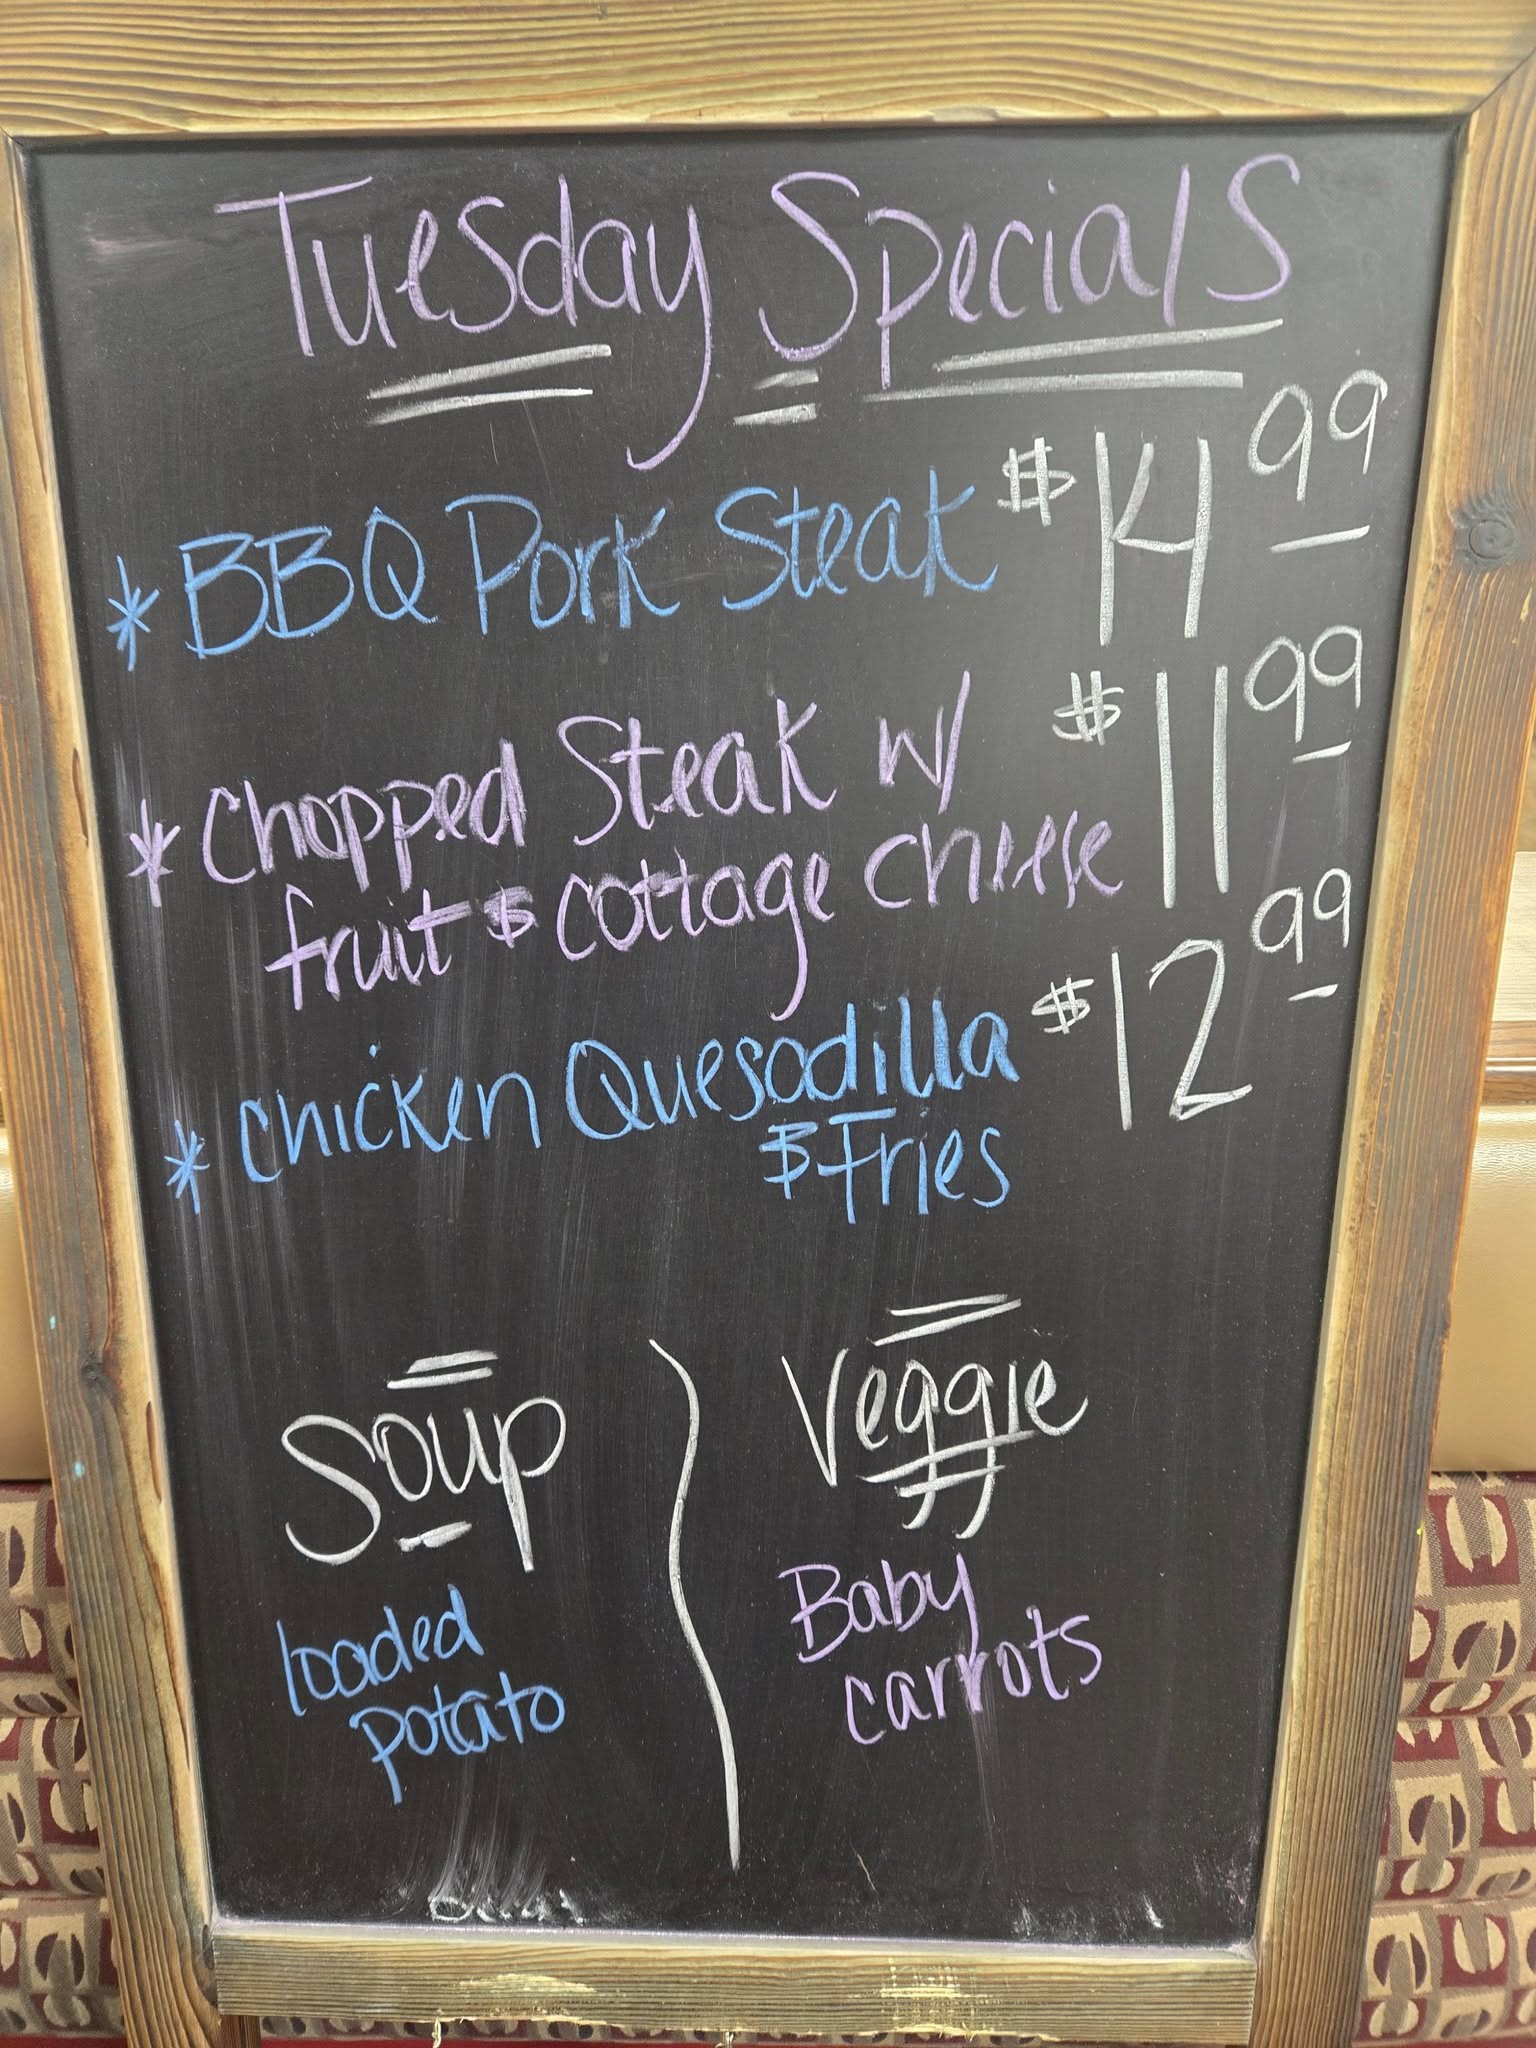 Tuesday Specials
* BBQ Pork Steak $14.99
* Chopped Steak w/ $11.99
fruit & cottage cheese
* Chicken Quesadilla $12.99
& Fries
Soup
loaded
potato
Veggie
Baby
carrots